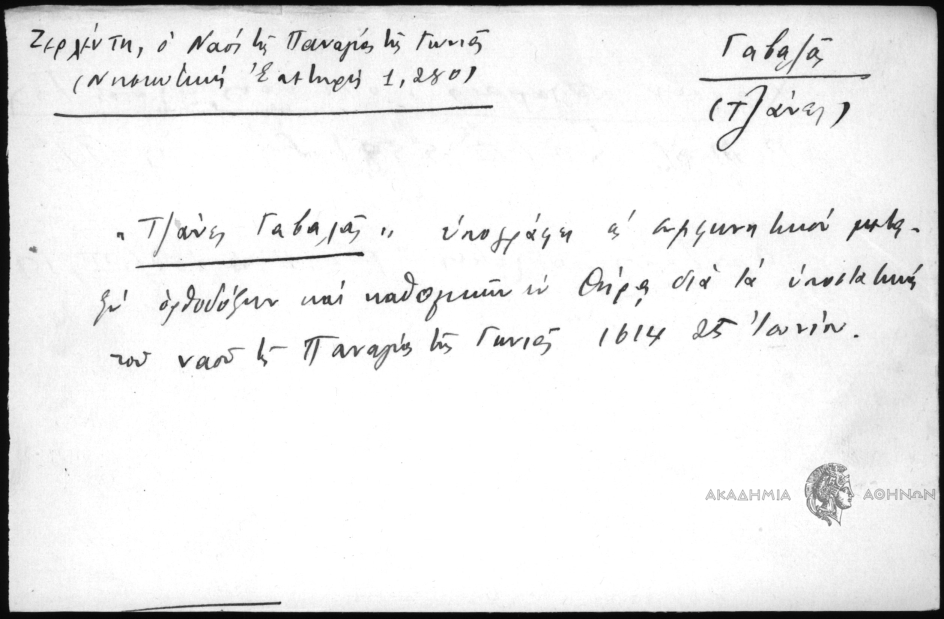 Ζερλέντη, ὁ Ναὸς τῆς Παναγίας τῆς Γωνιᾶς
(Νησιωτικὴ Ἐπετηρὶς 1, 280)
Γαβαλᾶς
(Τζάνες)
"Τζάνες Γαβαλᾶς" ὑπογράφει εἰς συμφωνητικὸν μετα-
ξὺ ὀρθοδόξων καὶ καθολικῶν ἐν Θήρᾳ διὰ τὰ ὑποστατικὰ
τοῦ ναοῦ τῆς Παναγίας τῆς Γωνιᾶς 1614 25 Ἰουνίου.
ΑΚΑΔΗΜΙΑ ΑΘΗΝΩΝ